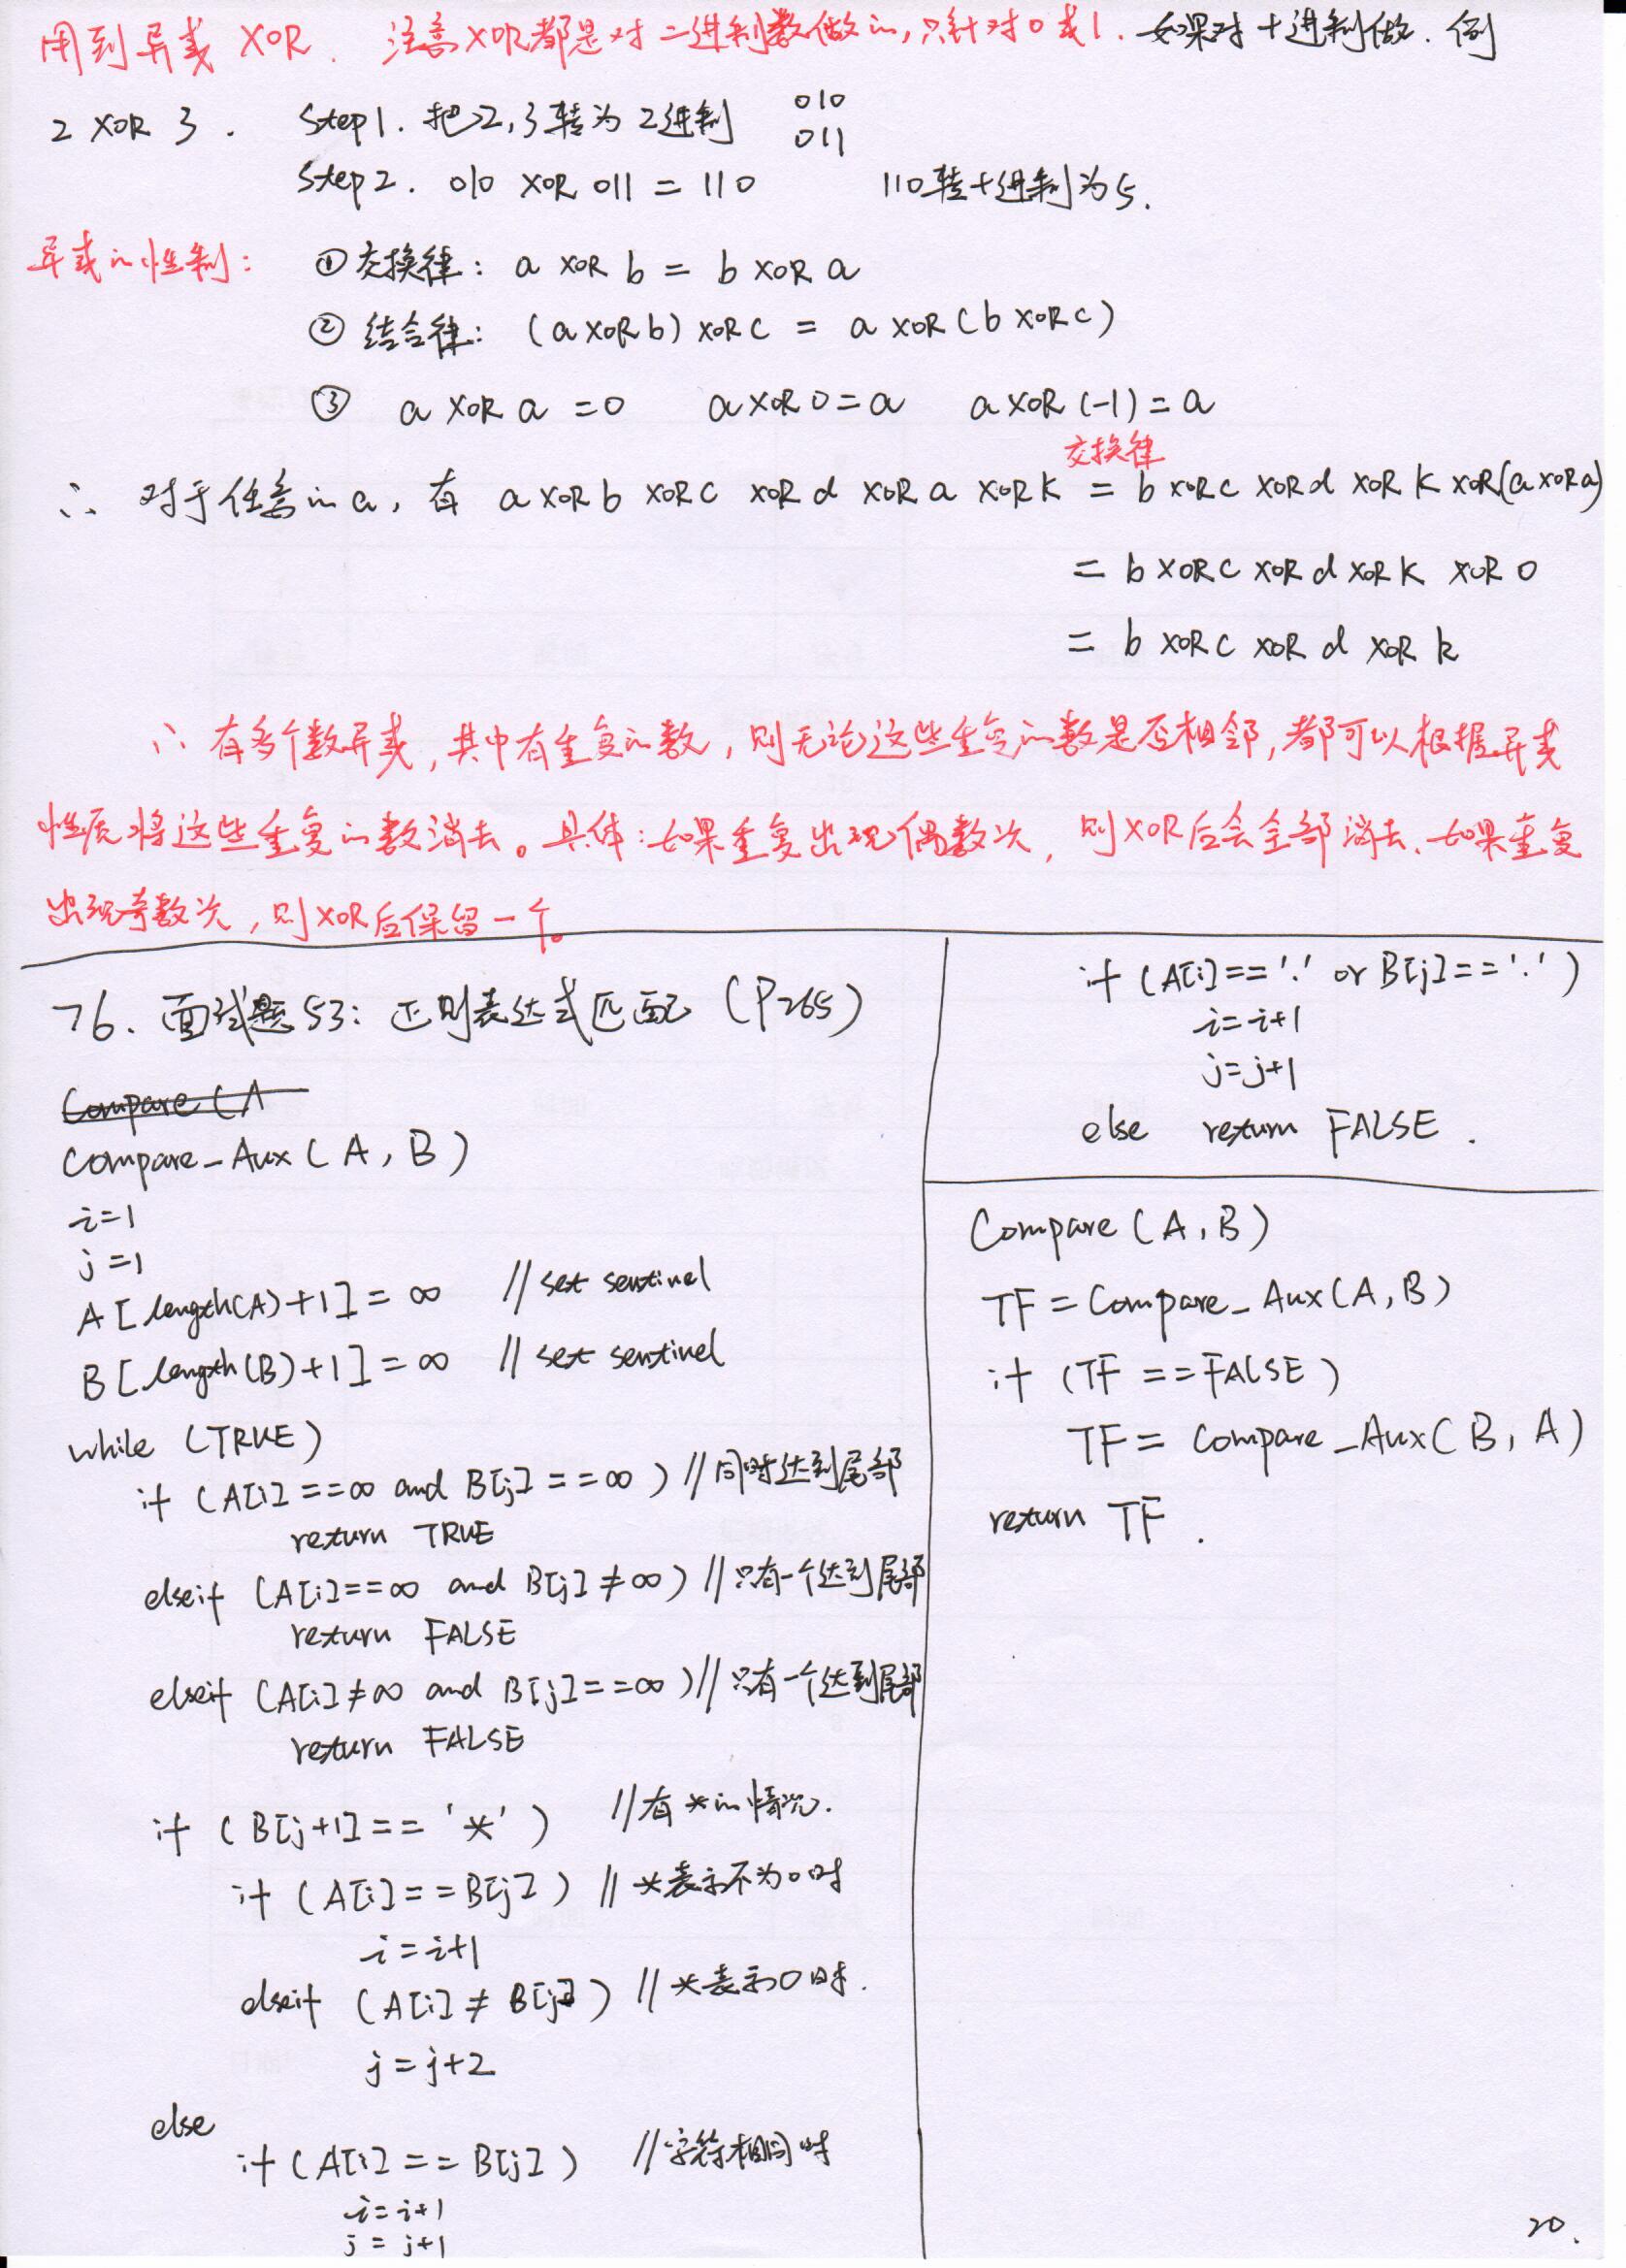 用到异或 XOR. 注意XOR都是对二进制数做的,只针对0或1. 如果对十进制做. 例
2 XOR 3. Step1. 把2,3转为2进制 010
011
Step2. 010 XOR 011 = 110 110转十进制为5.
异或的性制: ①交换律: a XOR b = b XOR a
② 结合律: (a XOR b) XOR C = a XOR (b XOR C)
③ a XOR a = 0 a XOR 0 = a a XOR (-1) = a
交换律
∴ 对于任意的a, 有 a XOR b XOR C XOR d XOR a XOR K = b XOR C XOR d XOR K XOR(a XOR a)
= b XOR C XOR d XOR K XOR 0
= b XOR C XOR d XOR k
∴ 有多个数异或,其中有重复的数,则无论这些重复的数是否相邻,都可以根据异或
性质将这些重复的数消去。具体:如果重复出现偶数次,则XOR后会全部消去.如果重复
出现奇数次,则XOR后保留一个。
76. 面试题53: 正则表达式匹配 (P265)
Compare (A
Compare_Aux (A, B)
i=1
j=1
A[length(A)+1] = ∞ // set sentinel
B[length(B)+1] = ∞ // set sentinel
while (TRUE)
if (A[i] == ∞ and B[j] == ∞) //同时达到尾部
return TRUE
elseif (A[i] == ∞ and B[j] ≠ ∞) //只有一个达到尾部
return FALSE
elseif (A[i] ≠ ∞ and B[j] == ∞) //只有一个达到尾部
return FALSE
if (B[j+1] == '*') //有*的情况.
if (A[i] == B[j]) // *表示不为0时
i = i+1
elseif (A[i] ≠ B[j]) // *表示0时.
j = j+2
else
if (A[i] == B[j]) //字符相同时
i = i+1
j = j+1
if (A[i] == '.' or B[j] == '.')
i = i+1
j = j+1
else return FALSE.
Compare (A, B)
TF = Compare_Aux(A, B)
if (TF == FALSE)
TF = Compare_Aux(B, A)
return TF.
20.